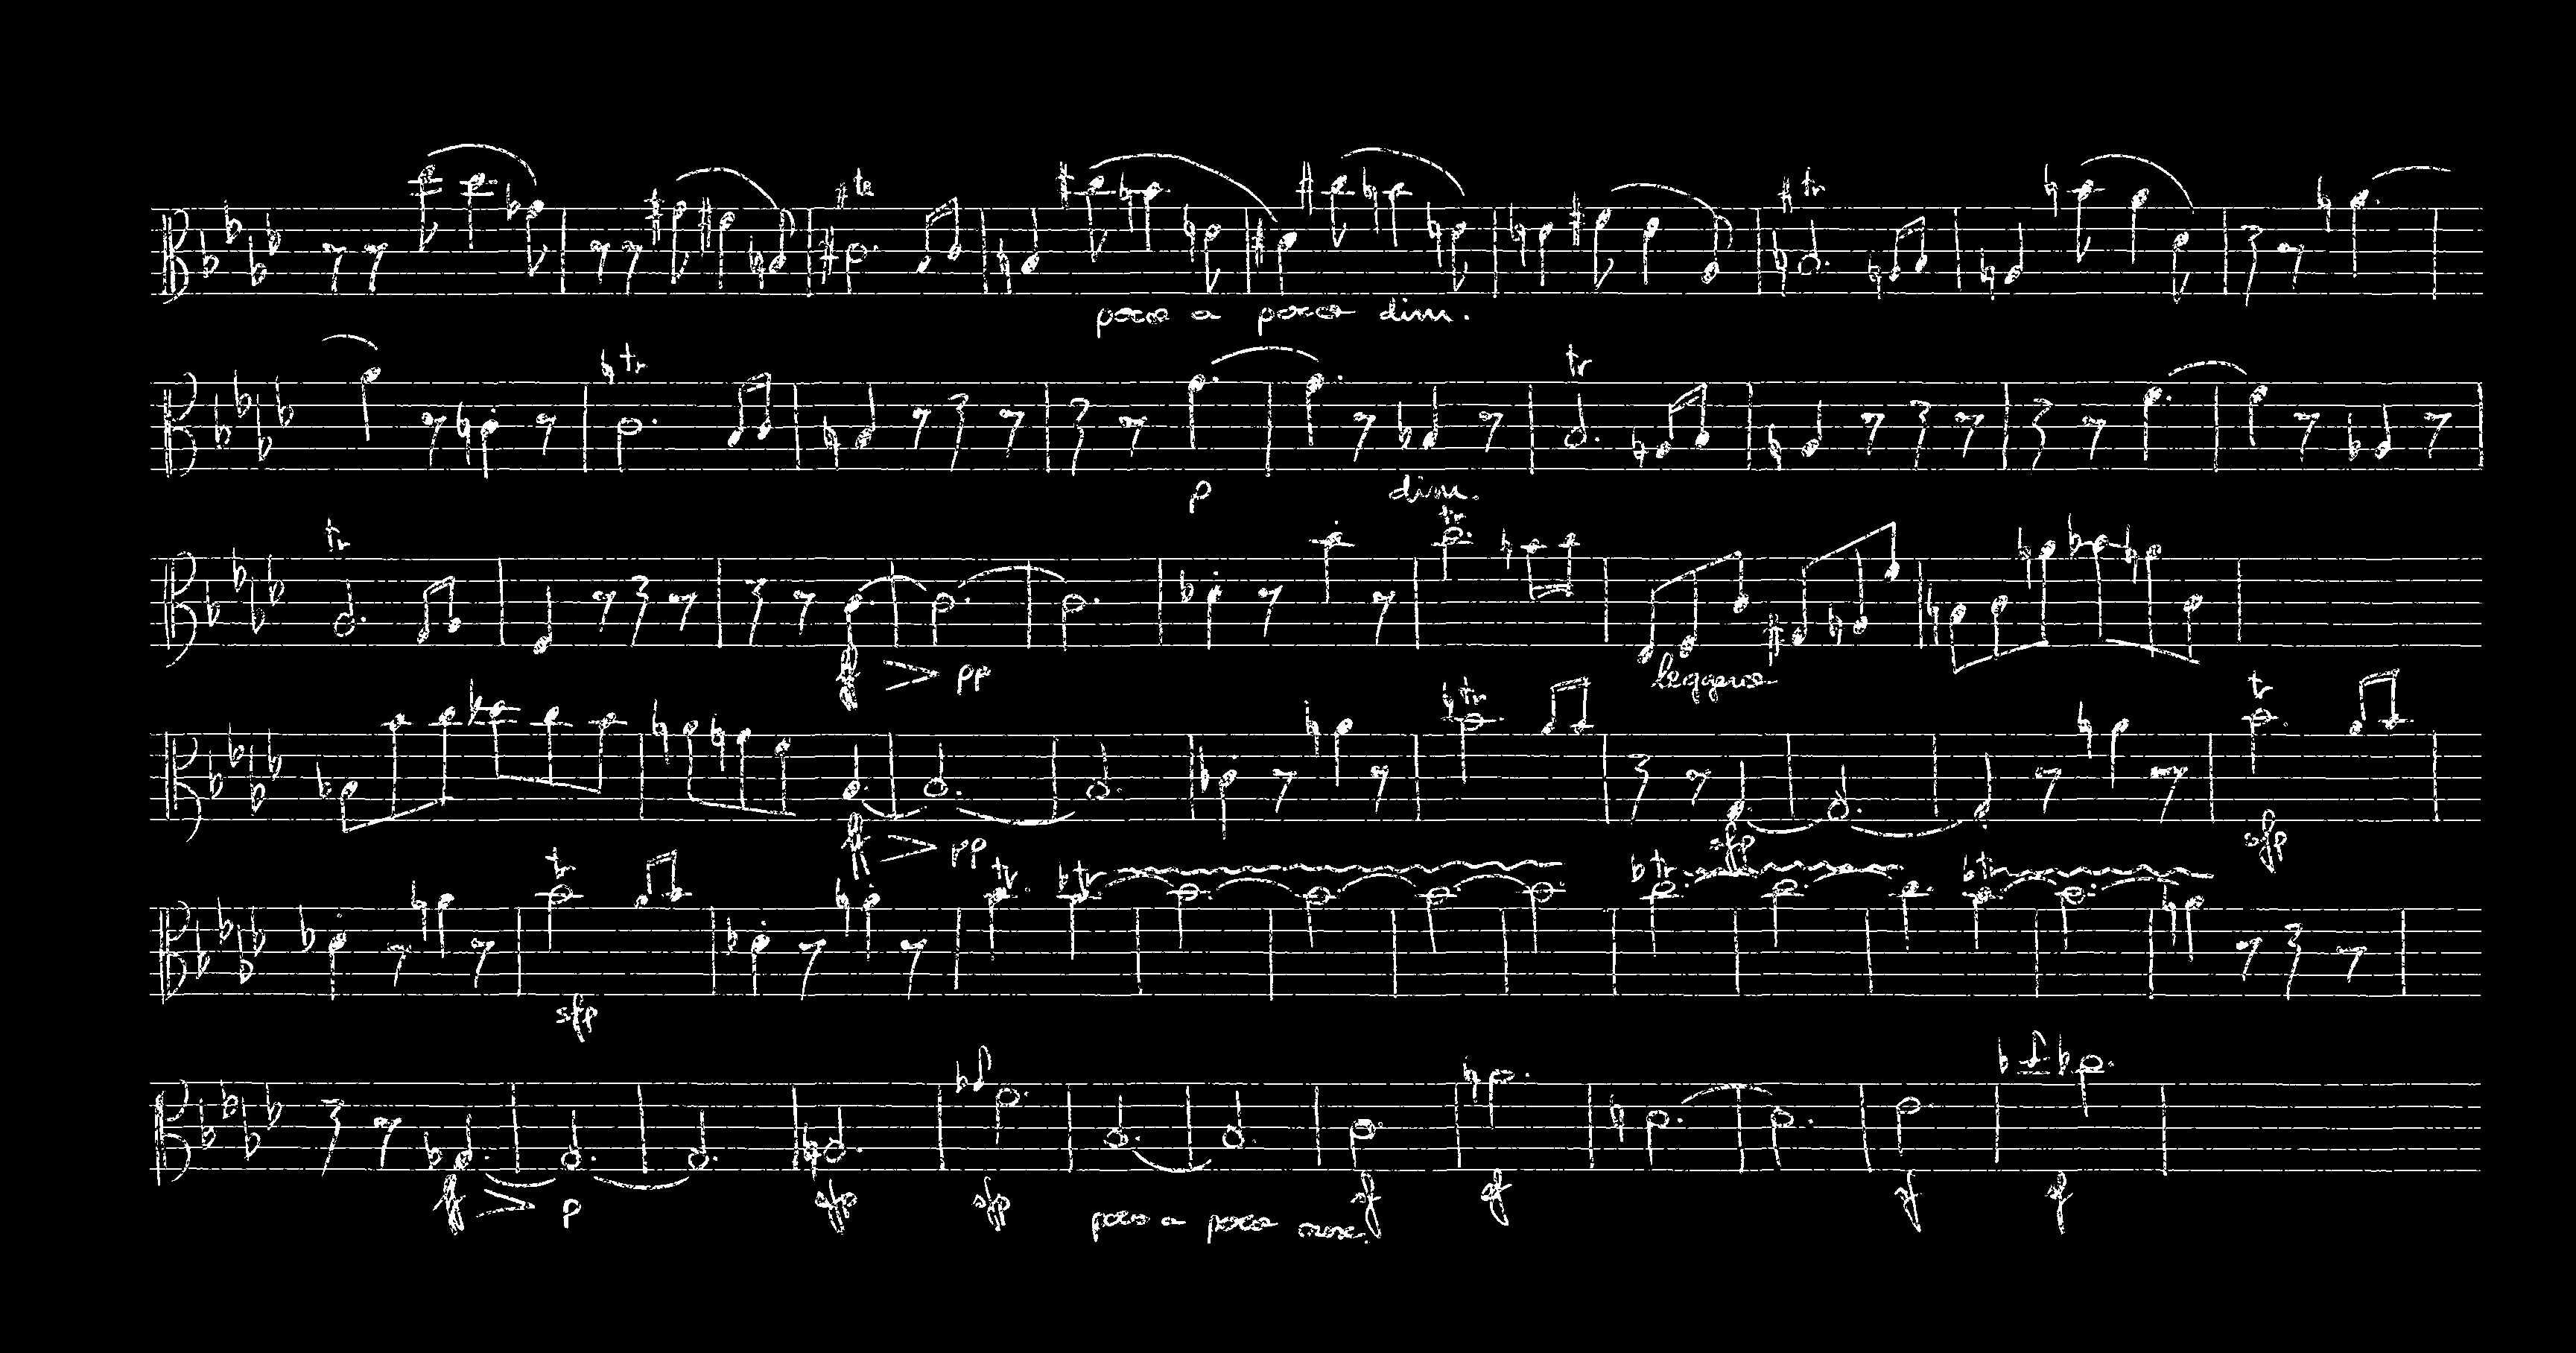 tr tr
poco a poco dim.
tr tr
p dim.
tr tr
ff pp leggero
tr tr
ff pp sfp sfp
tr tr tr tr tr
sfp
ff p sfp sfp poco a poco sf sf sf sf